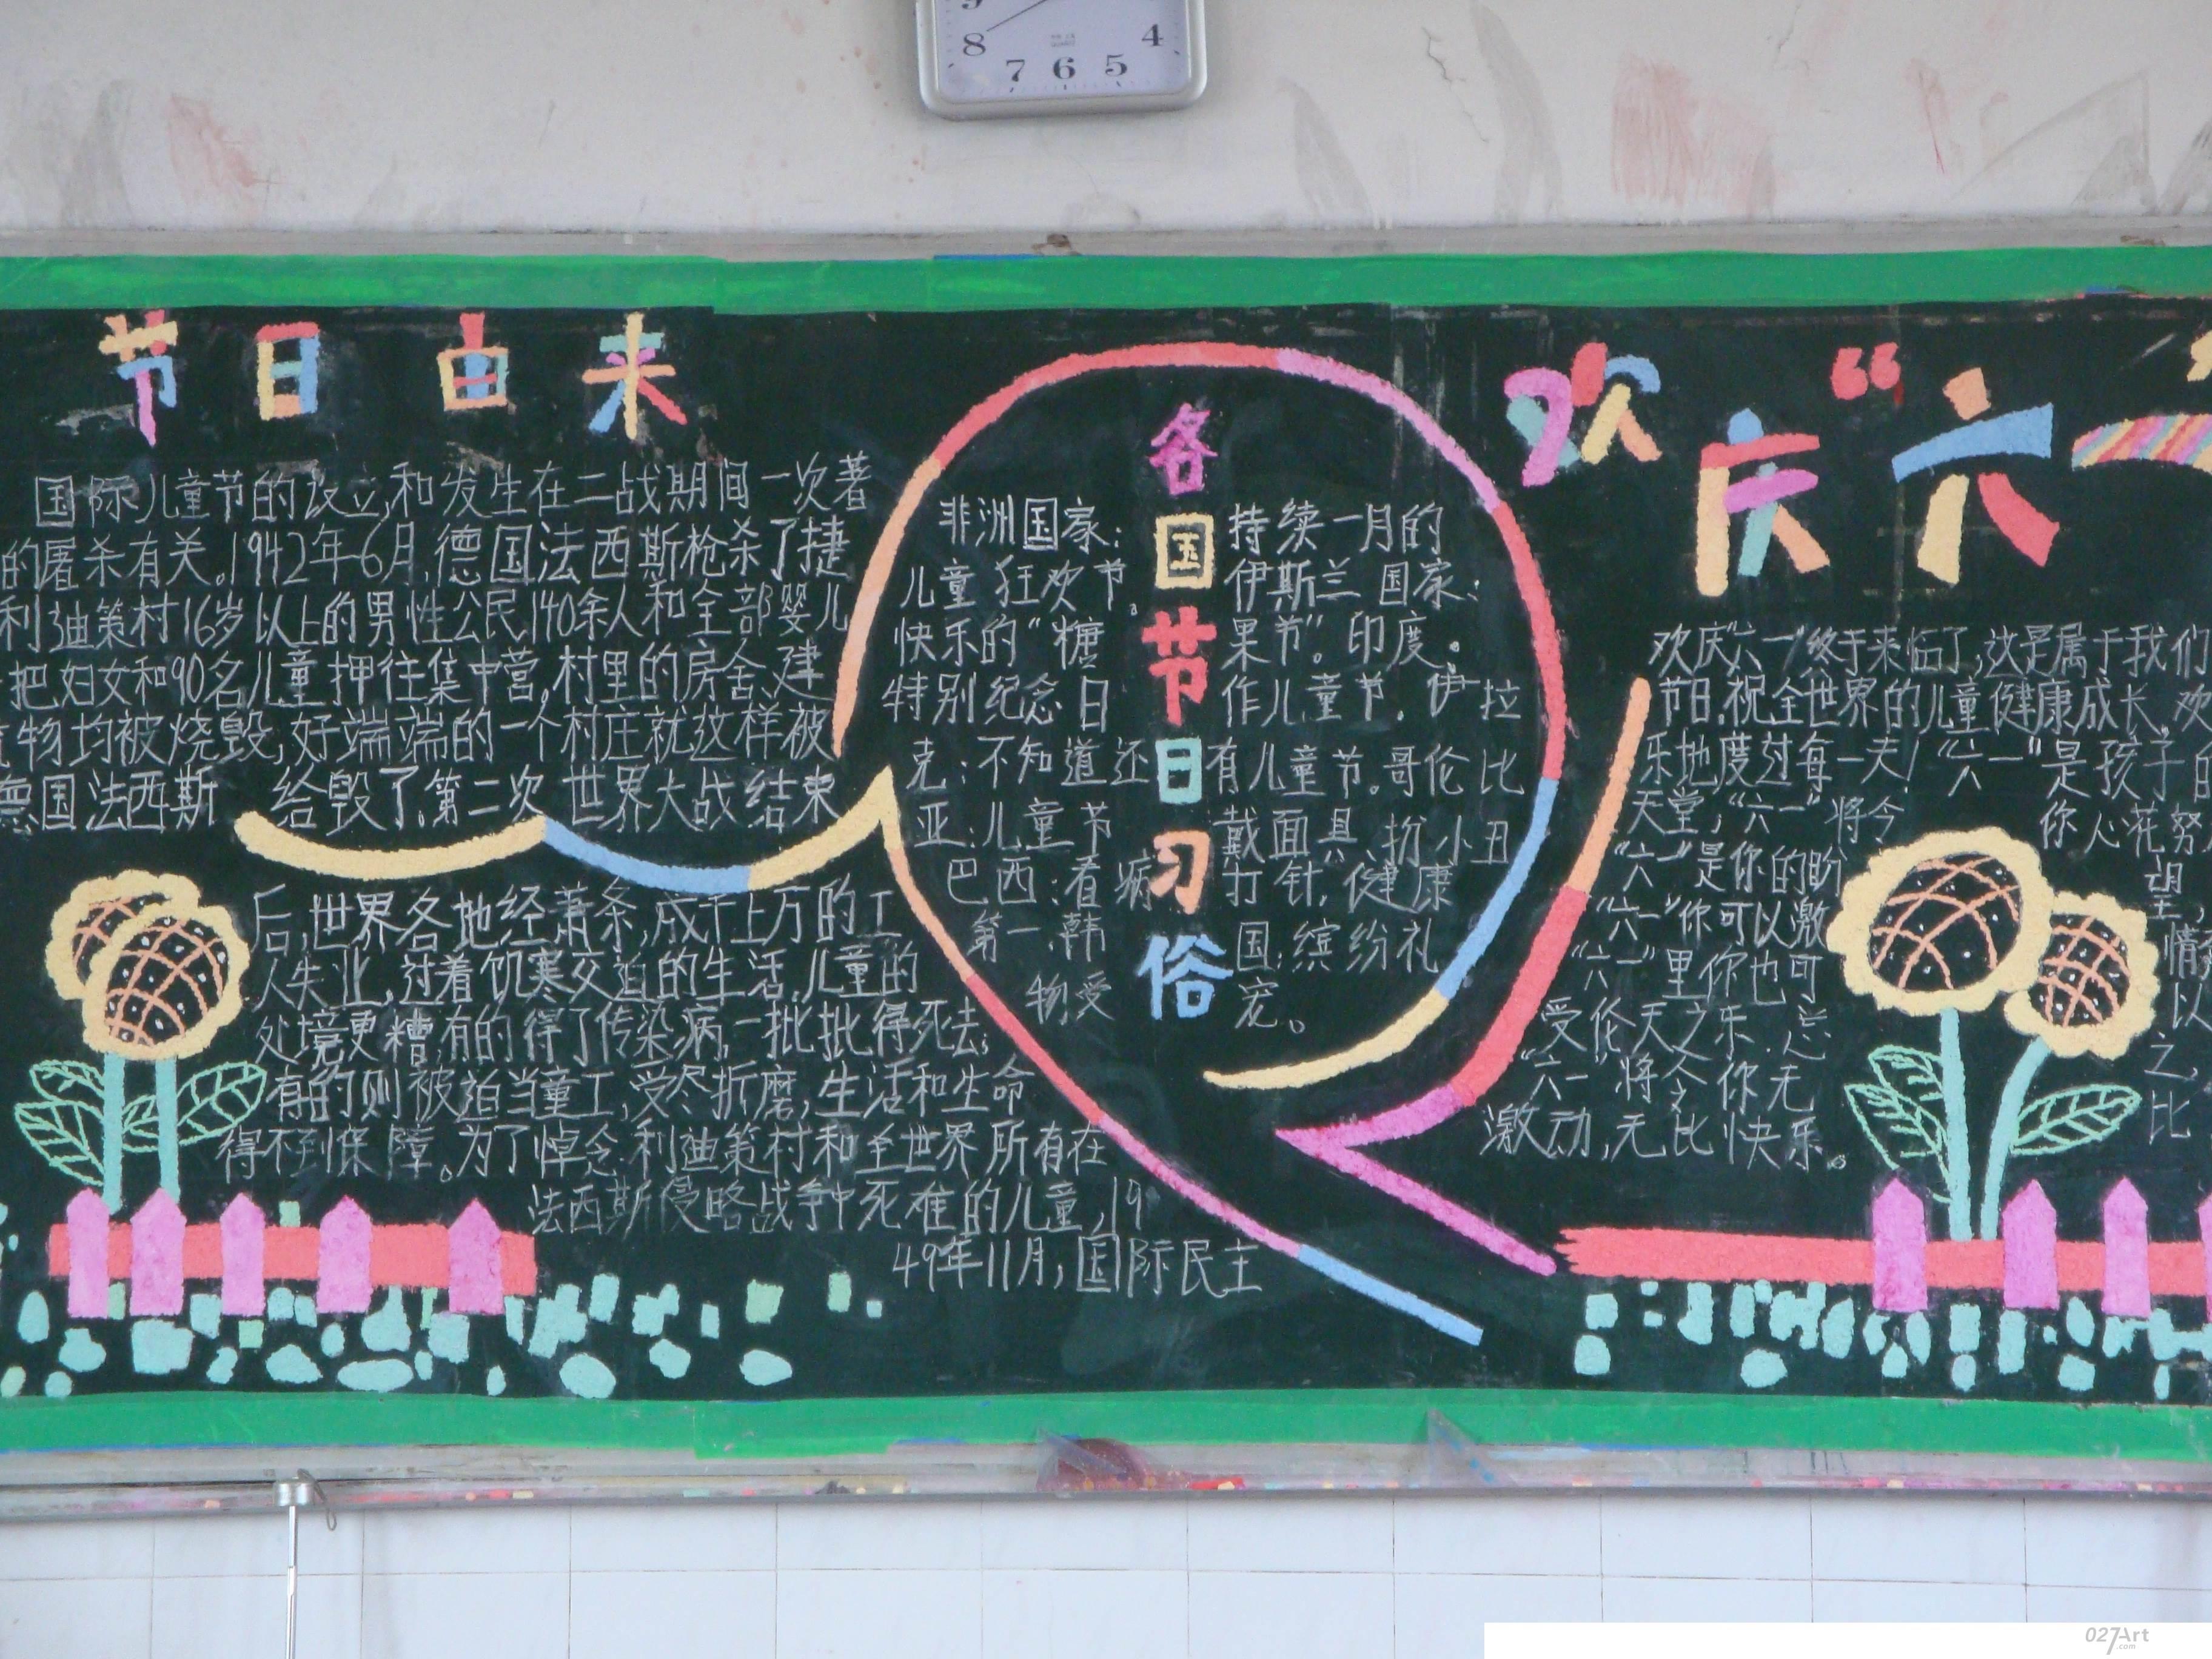 9
8
7
6
5
4
节日由来
国际儿童节的设立,和发生在二战期间一次著
的屠杀有关。1942年6月,德国法西斯枪杀了捷
利迪策村16岁以上的男性公民140余人和全部婴儿
把妇女和90名儿童押往集中营。村里的房舍、建
物均被烧毁,好端端的一个村庄就这样被
德国法西斯 给毁了。第二次 世界大战结束
后,世界各地经萧条,成千上万的工
人失业,过着饥寒交迫的生活,儿童的
处境更糟,有的得了传染病,一批批得死去,
有的则被迫当童工,受尽折磨,生活和生命
得不到保障。为了悼念利迪策村和全世界所有在
法西斯侵略战争中死难的儿童,19
49年11月,国际民主
各国节日习俗
非洲国家: 持续一月的
儿童狂欢节。 伊斯兰国家:
快乐的“糖 果节”。印度。
特别纪念日 作儿童节.伊拉
克:不知道还 有儿童节.哥伦比
亚:儿童节 戴面具,扮小丑
巴西:看病 打针,健康
第一.韩 国:缤纷礼
物受 宠。
欢庆“六一
欢庆“六一”终于来临了,这是属于我们
节日.祝全世界的儿童健康成长,欢
乐地度过每一天! “六一”是孩子的
天堂,“六一”将令 你心花努
“六一”是你的盼 望,
“六一”你可以激 情
“六一”里你也可 以
受伦天之乐.忘 之,
“六一”将令你无 比
激动,无比快乐。
027Art
.com